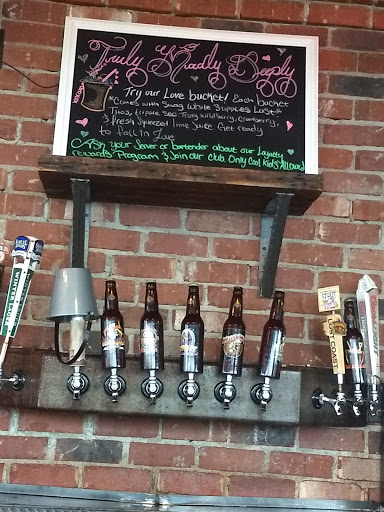 Truly Madly Deeply
Try our Love bucket! Each bucket
*Comes with Swag While Supplies Last*
Titos, tripple sec, Truly wildberry, Cranberry,
& Fresh Squeezed lime Juice. Get ready
to fall In Love
Ask your Server or bartender about our Loyalty
rewards Program & Join our club. Only Cool Kids Allowed
WINTER
LOST COAST